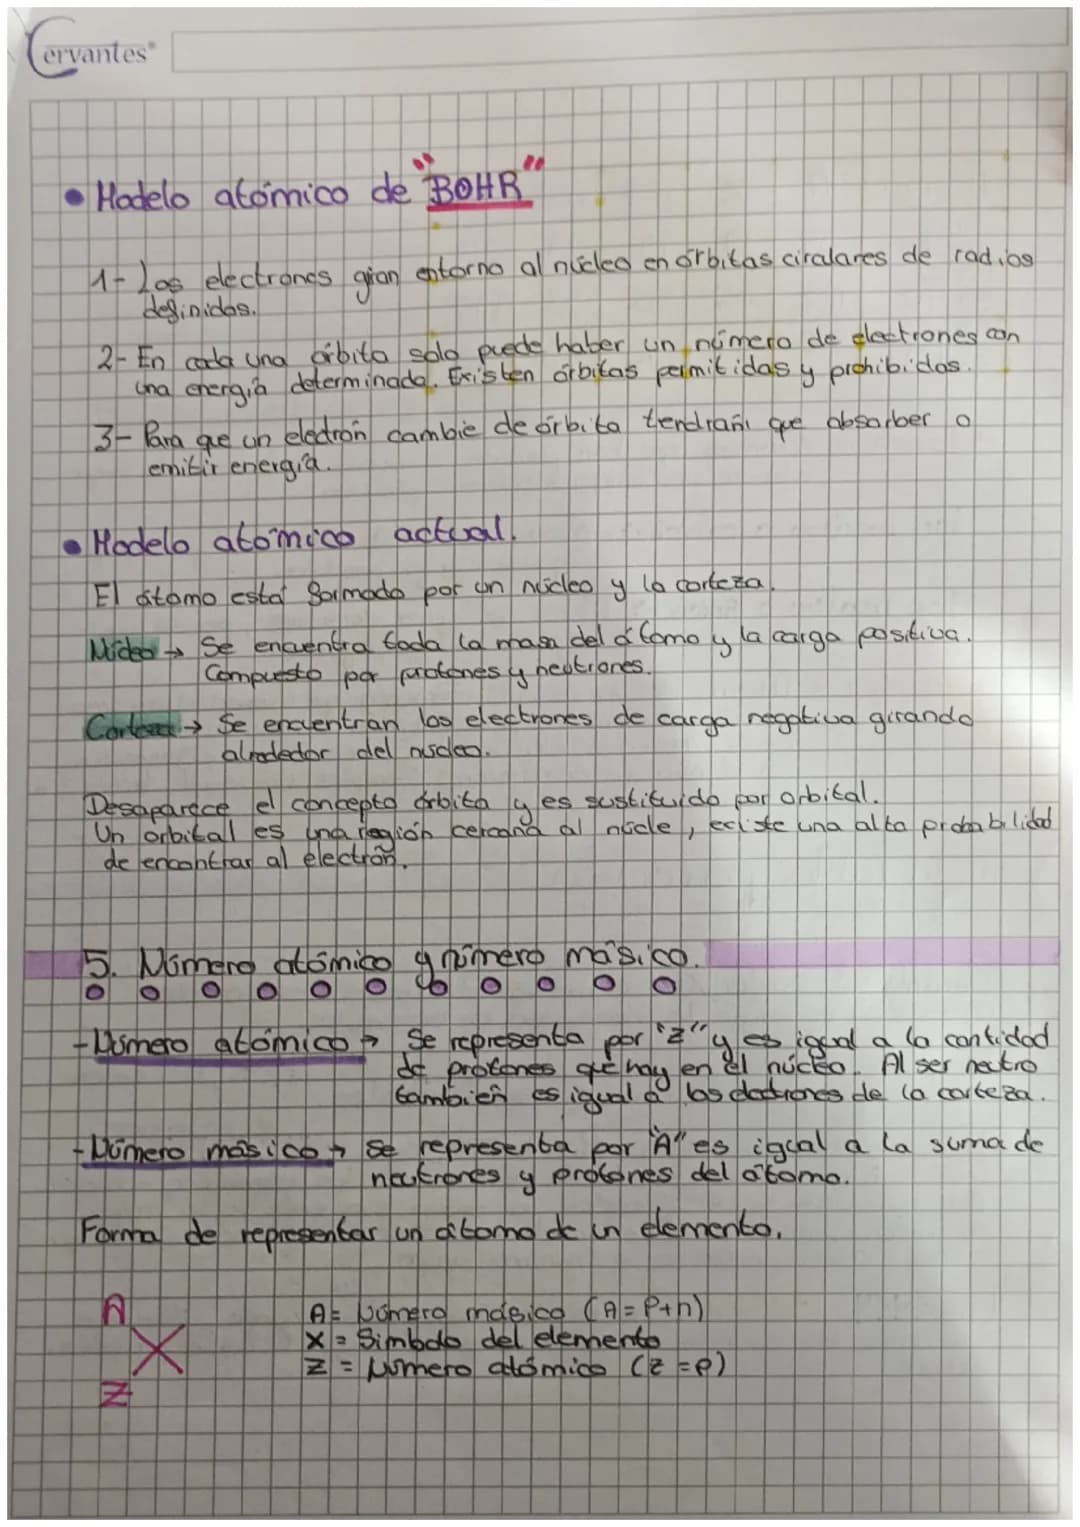 Cervantes®
• Modelo atómico de "BOHR"
1- Los electrones giran entorno al núcleo en órbitas circulares de radios
definidos.
2- En cada una órbita solo puede haber un número de electrones con
una energía determinada. Existen órbitas permitidas y prohibidas.
3- Para que un electrón cambie de órbita tendrañ que absorber o
emitir energía.
• Modelo atómico actual.
El átomo está formado por un núcleo y la corteza.
Núcleo → Se encuentra toda la masa del átomo y la carga positiva.
Compuesto por protones y neutrones.
Corteza → Se encuentran los electrones de carga negativa girando
alrededor del nucleo.
Desaparece el concepto órbita y es sustituido por orbital.
Un orbital es una región cercana al núcle, existe una alta probabilidad
de encontrar al electrón.
5. Número atómico y número másico.
- Número atómico → Se representa por "Z" y es igual a la cantidad
de protones que hay en el núcleo. Al ser neutro
también es igual a los electrones de la corteza.
- Número másico → Se representa por "A" es igual a la suma de
neutrones y protones del átomo.
Forma de representar un átomo de un elemento.
A A= Número másico (A=P+n)
X X = Simbolo del elemento
Z Z = Número atómico (Z=p)